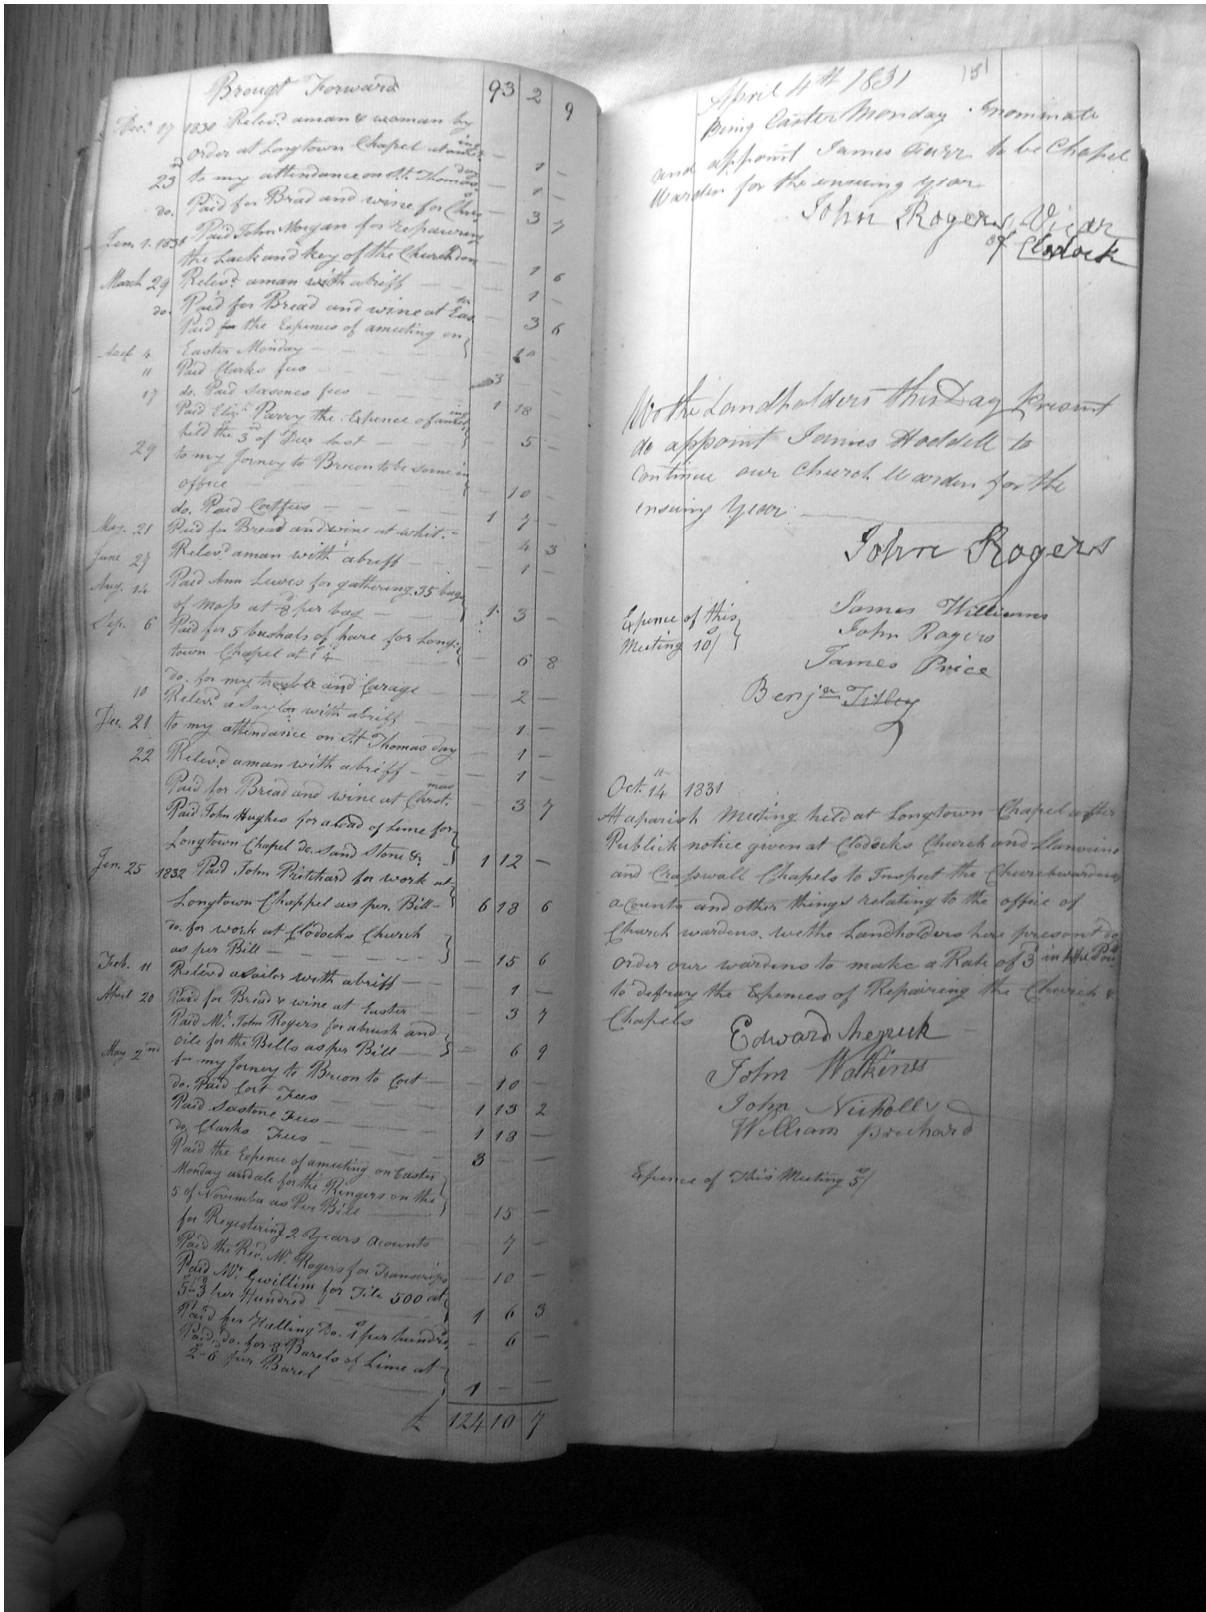 Brougt Forward 93 2 9
Decr. 17 1830 Relevd. aman & woman by
order at Longtown Chapel at a meeting — 1 —
23rd to my attendance on St. Thomas day — 1 —
do. Paid for Brad and wine for Chris — 3 7
Jan. 1. 1831 Paid John Morgan for repairing
the Lock and key of the Church dore — 1 6
March 29 Relevd. aman with abriff — — 1 —
do. Paid for Bread and wine at Easr. — 3 6
Paid for the Expences of ameeting on
4 Easter Monday — — — 10 —
11 Paid Clarks fees — — — 3
17 do. Paid Sexones fees — — 1 18 —
Paid Elizh. Parry the Expence of ameeting
held the 3d of Decr last — — 5 —
29 to my Jorney to Brecon to be sworne in
office — — — 10 —
do. Paid Cortfees — — — 1 7 —
May. 21 Paid for Bread and wine at whit. — 4 3
June 27 Relevd aman with abriff — — 1 —
Aug. 14 Paid Ann Lewes for gathering 35 bags
of Moss at 8d per bag — 1 3 —
Sep. 6 Paid for 5 bushals of hare for Long-
town Chapel at 1s 4d — 6 8
do. for my trouble and Carage — 2 —
10 Relevd a Saylor with abriff — — 1 —
Dec. 21 to my attendance on St Thomas day — 1 —
22 Relevd aman with abriff — — 1 —
Paid for Bread and wine at Christmas — 3 7
Paid John Hughes for aload of Lime for
Longtown Chapel do. Sand Stone &c. 1 12 —
Jan. 25 1832 Paid John Pritchard for work at
Longtown Chappel as per. Bill — 6 18 6
do. for work at Clodocks Church
as per Bill — — — 15 6
Feb. 11 Relevd asailor with abriff — — 1 —
Aprl 20 Paid for Bread & wine at Easter — 3 7
Paid Mr. John Rogers for abrush and
oile for the Bells as per Bill — — 6 9
May 2nd for my Jorney to Brecon to Cort — 10 —
do. Paid Cort Fees — — 1 13 2
Paid Sextone Fees — — 1 18 —
do Clarks Fees — — 3 — —
Paid the Expence of ameeting on Easter
Monday and ale for the Ringers on the
5 of November as Per Bill — — 15 —
for Registering 2 Years acounts — 7 —
Paid the Revd. Mr. Rogers for Transcrips — 10 —
Paid Mr. Gwillim for Tile 500 at
5s-3d per Hundred — 1 6 3
Paid for Halling Do. 1s per hundred — 6 —
Paid do. for 8 Barels of Lime at
2s-6d per Barel — — 1 — —
£ 124 10 7
131
April 4th 1831
Being Easter Monday I nominate
and appoint James Farr to be Chapel
Warden for the ensuing year
John Rogers, Vicar
of Clodock
We the Landholders this Day Present
do appoint James Hoddell to
continue our Church Warden for the
ensuing Year.
John Rogers
James Williams
Expence of this John Rogers
Meeting 10s/ James Price
Benjan Tilley
Octr. 14 1831
At aparish Meeting held at Longtown Chapel after
Publick notice given at Clodocks Church and Llanveino
and Craswall Chapels to Inspect the Churchwardens
acounts and other things relating to the office of
Church wardens. we the Landholders here present do
order our wardens to make a Rate of 3d in the Pou.
to defray the Expences of Repairing the Church &
Chapels
Edward Merrick
John Watkins
John Nicholls
William prichard
Expence of This Meeting 5s/